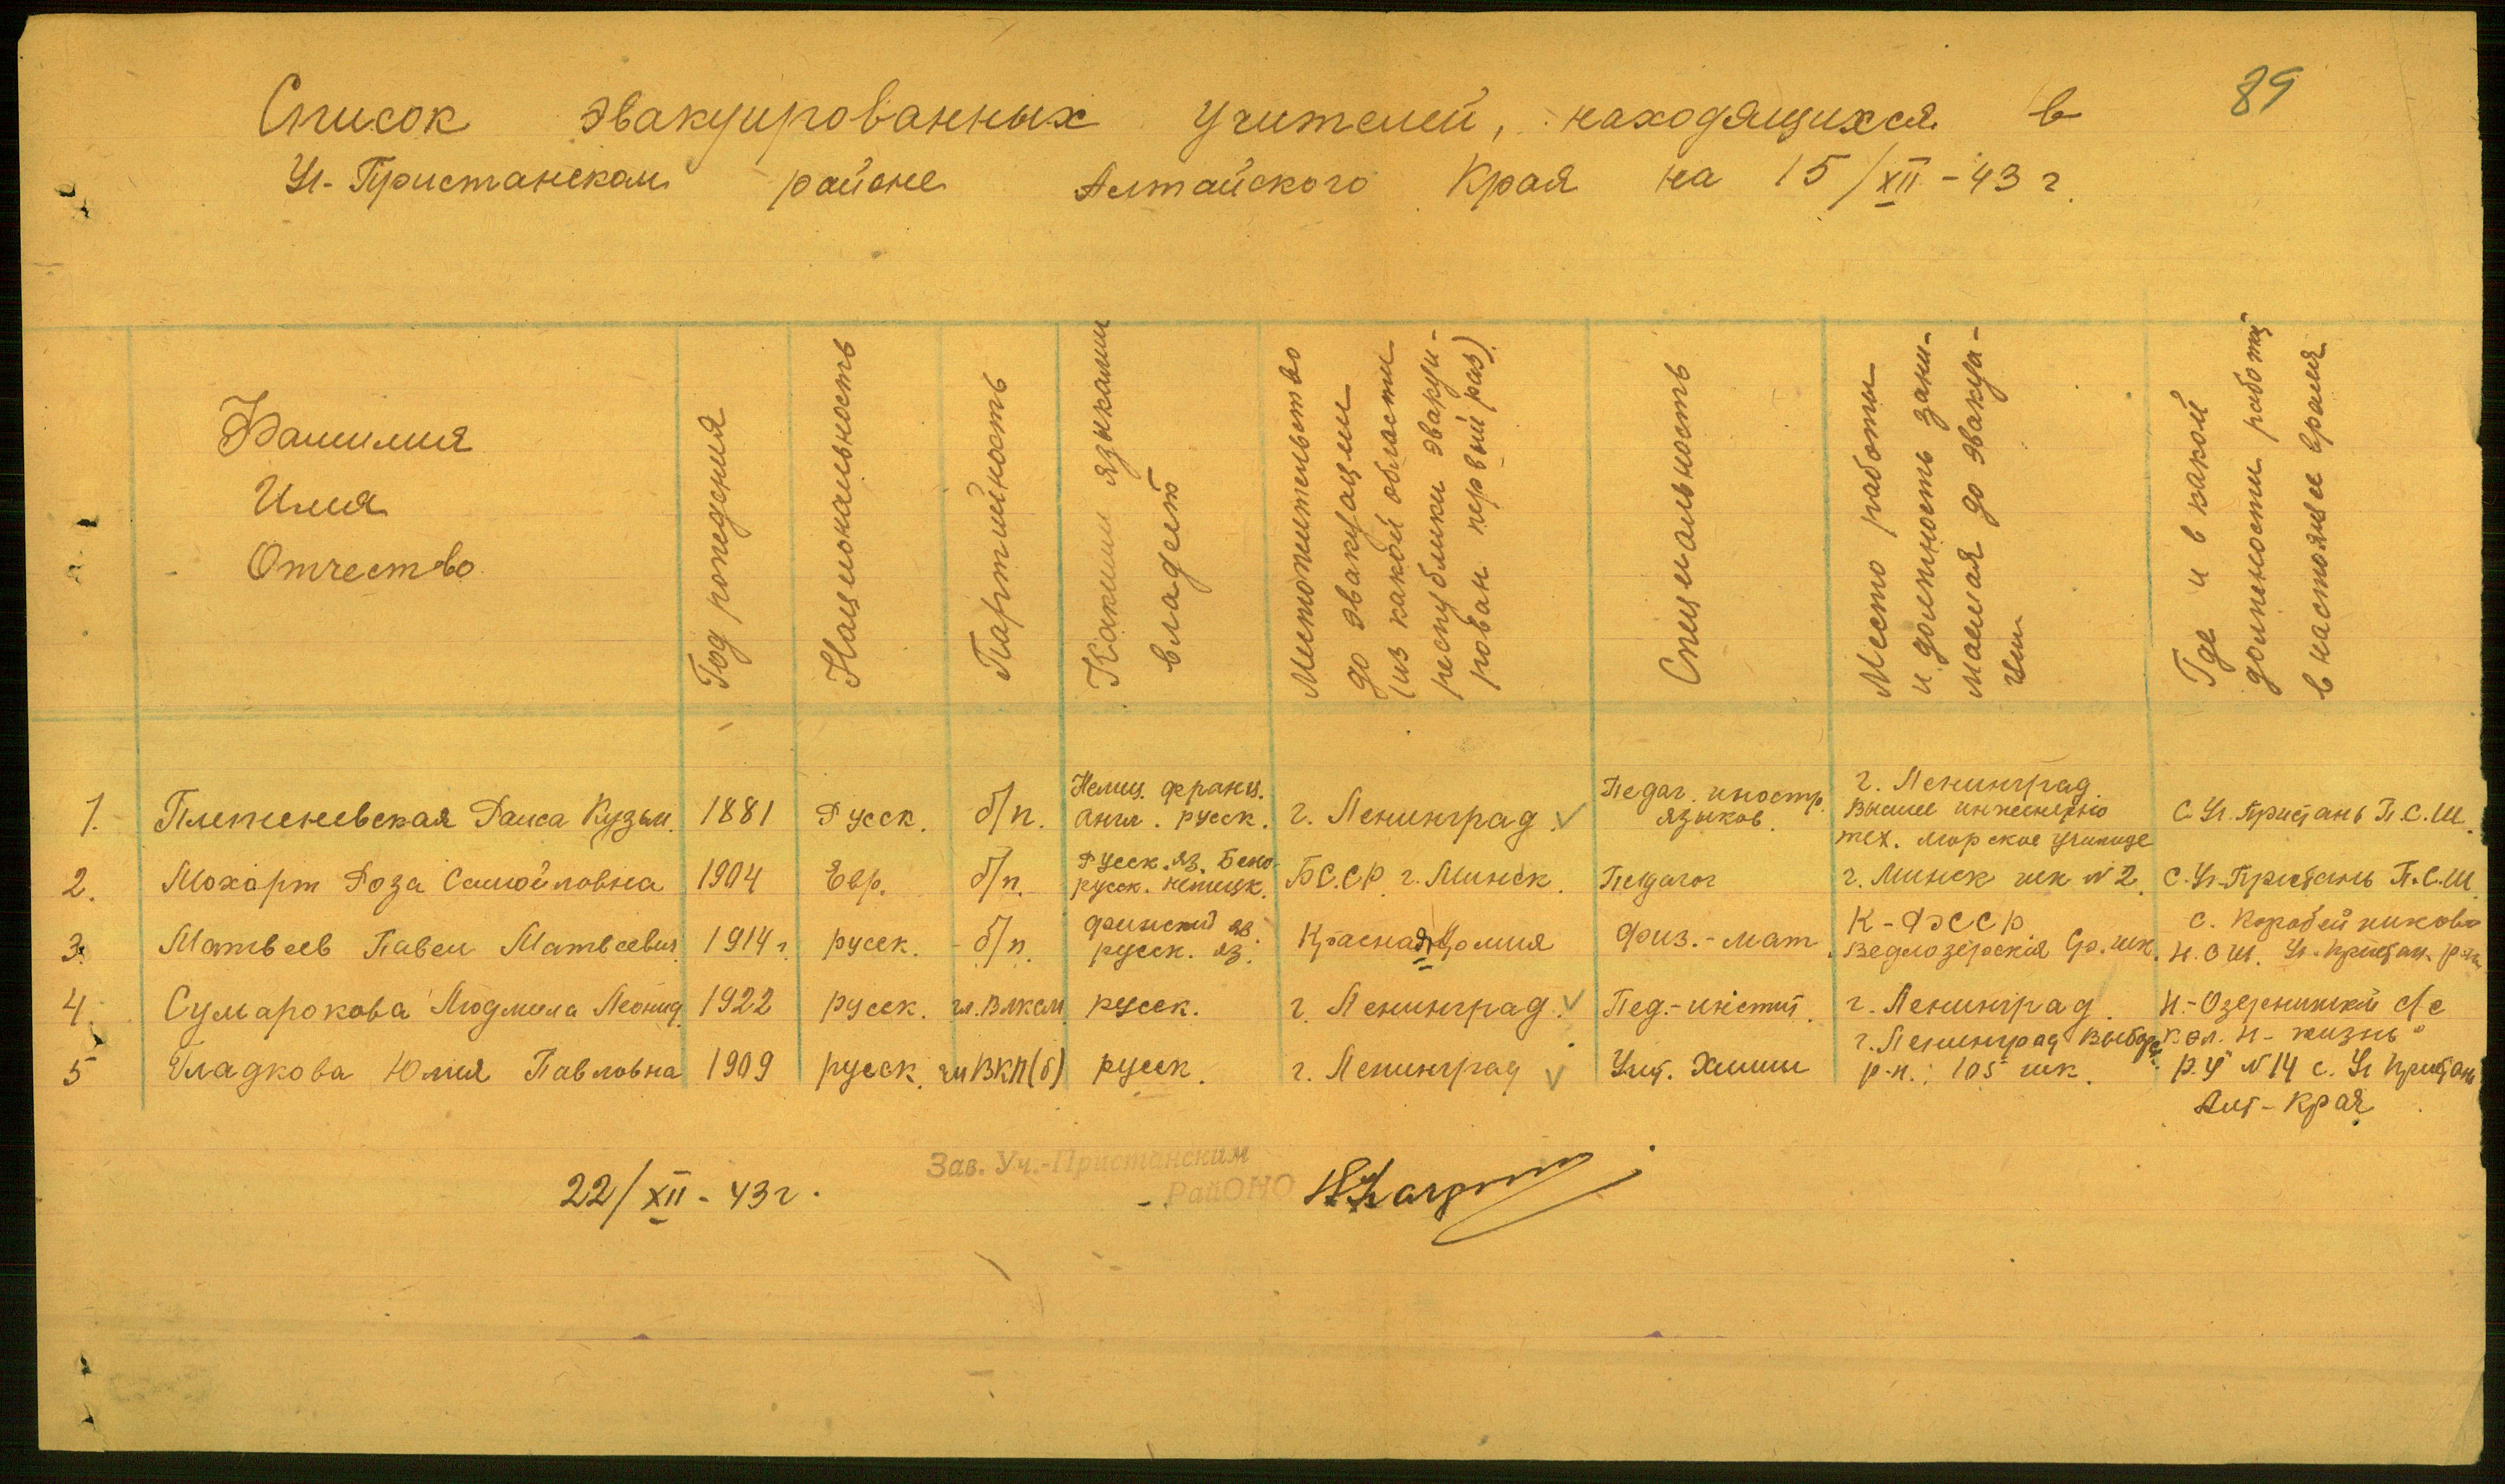 89
Список эвакуированных учителей, находящихся в
Уч-Пристанском районе Алтайского Края на 15/XII-43 г.
Фамилия
Имя
Отчество
Год рождения
Национальность
Партийность
Какими языками
владеет
Местожительство
до эвакуации
(из какой области
республики эвакуи-
рован первый раз).
Специальность
Место работы
и должность зани-
маемая до эвакуа-
ции
Где и в какой
должности работ.
в настоящее время
1. Раиса Кузьм. 1881 Русск. б/п. Немец. франц.
англ. русск. г. Ленинград. Педаг. иностр.
языков. г. Ленинград.
Высшее инженерно
тех. морское училище С. Уч. Пристань П.С.Ш.
2. Мохарт Роза Самойловна 1904 Евр. б/п. Русск. яз. Бело-
русск. немецк. БССР г. Минск. Педагог г. Минск шк № 2. С. Уч-Пристань П.С.Ш
3. Матвеев Павел Матвеевич 1914 г. русск. - б/п. финский яз.
русск. яз. Красная Физ.-мат. К-ФССР
Ведлозерская Ср. шк. с. Коробейниково
Н.С.Ш. Уч. Пристан. р-на
4. Сумарокова Людмила Леонид. 1922 русск. чл. ВЛКСМ русск. г. Ленинград. Пед.-инстит. г. Ленинград. Н-Озернинский с/с
кол. Н-жизнь"
5 Гладкова Юлия Павловна 1909 русск. чл ВКП(б) русск. г. Ленинград Учит. Химии г. Ленинград Выборг.
р-н. 105 шк. Р.У № 14 с. Уч Пристань
Алт-Края
22/XII-43 г.
Зав. Уч.-Пристанским
РайОНО